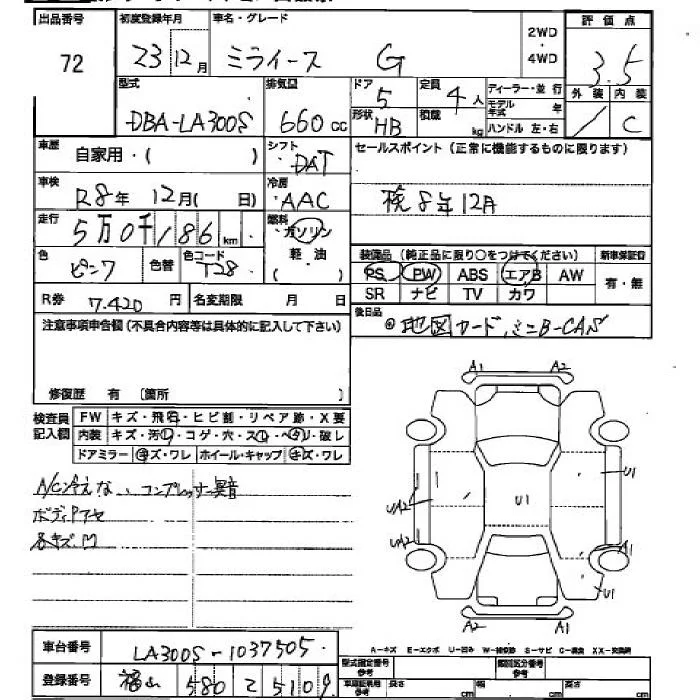 出品番号 初度登録年月 車名・グレード 2WD 評価点
72 23 12月 ミライース G ・ 3.5
4WD
型式 排気量 ドア 5 定員 4人 ディーラー・並行 外装 内装
DBA-LA300S 660cc 形状 HB 積載 kg モデル年式 年 / C
ハンドル 左・右
車歴 自家用・( ) シフト DAT セールスポイント(正常に機能するものに限ります)
車検 R8年 12月( 日) 冷房 AAC 検8年12月
走行 5万0千186km 燃料 ガソリン
軽・油
( )
色 ピンク 色替 色コード T28
装備品(純正品に限り○をつけてください) 新車保証書
PS PW ABS エアB AW 有・無
SR ナビ TV カワ
R券 7.420円 名変期限 月 日
後日品 地図カード,ミニB-CAS
注意事項申告欄(不具合内容等は具体的に記入して下さい)
修復歴 有 〔箇所 〕
検査員記入欄 FW キズ・飛石・ヒビ割・リペア跡・X要
内装 キズ・汚し・コゲ・穴・スレ・ヘタリ・破レ
ドアミラー キズ・ワレ ホイール・キャップ キズ・ワレ
A/C冷えな、コンプレッサー異音
ボディDアセ
各キズ凹
A1 A2
U1
UA2 U1
UA2 A1
U1
A2 A1
A-キズ E-エクボ U-凹み W-補修跡 S-サビ C-腐食 XX-交換済
車台番号 LA300S-1037505
登録番号 福山 580 て 5109
型式指定番号 参考 類別区分番号 参考
車庫証明用 参考 長さ cm 幅 cm 高さ cm